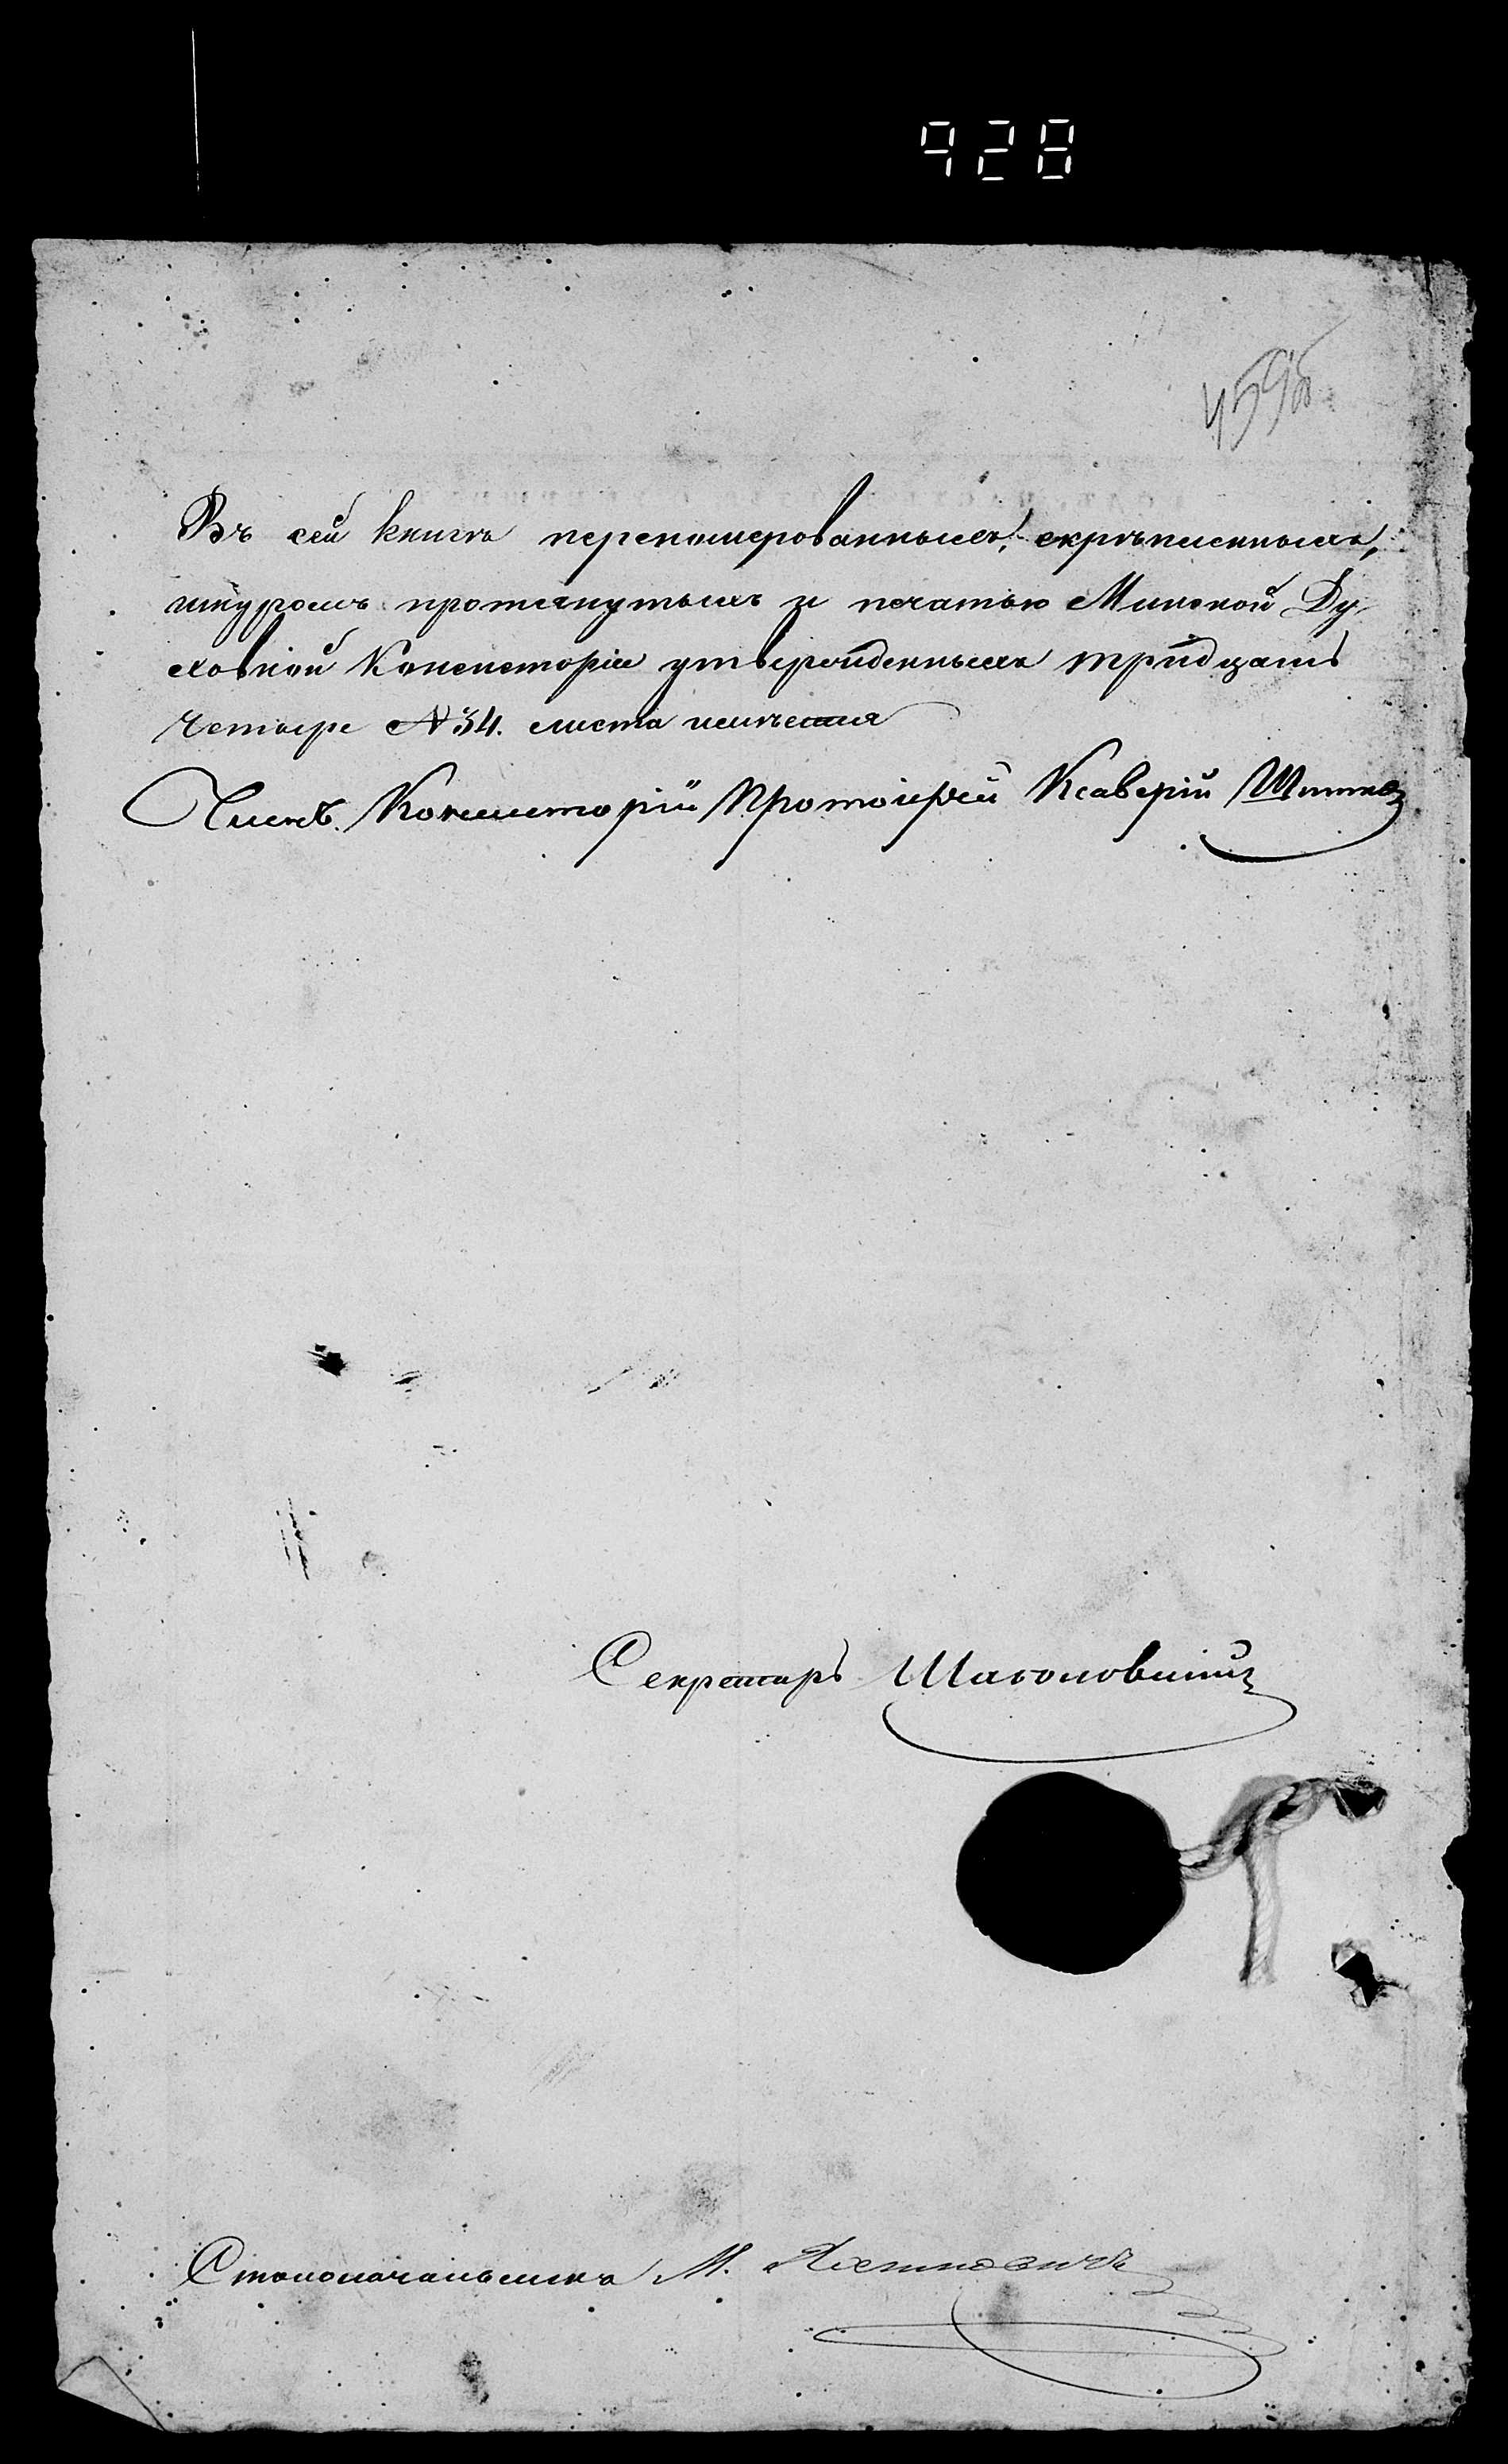 928
459об
Въ сей книгѣ перенумерованныхъ, скрѣпленныхъ,
шнуромъ протянутыхъ и печатью Минской Ду-
ховной Консисторіи утвержденныхъ тридцать
четыре №34. листа имѣется
Членъ Консисторіи Протоіерей Ксаверій
Секретарь
Столоначальникъ М.